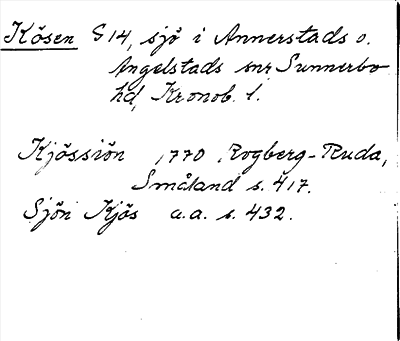 Kösen S14, sjö i Annerstads o.
Angelstads snr Sunnerbo
hd, Kronob. l.
Kjössiön 1770 Rogberg-Ruda,
Småland s. 417.
Sjön Kjös a.a. s. 432.